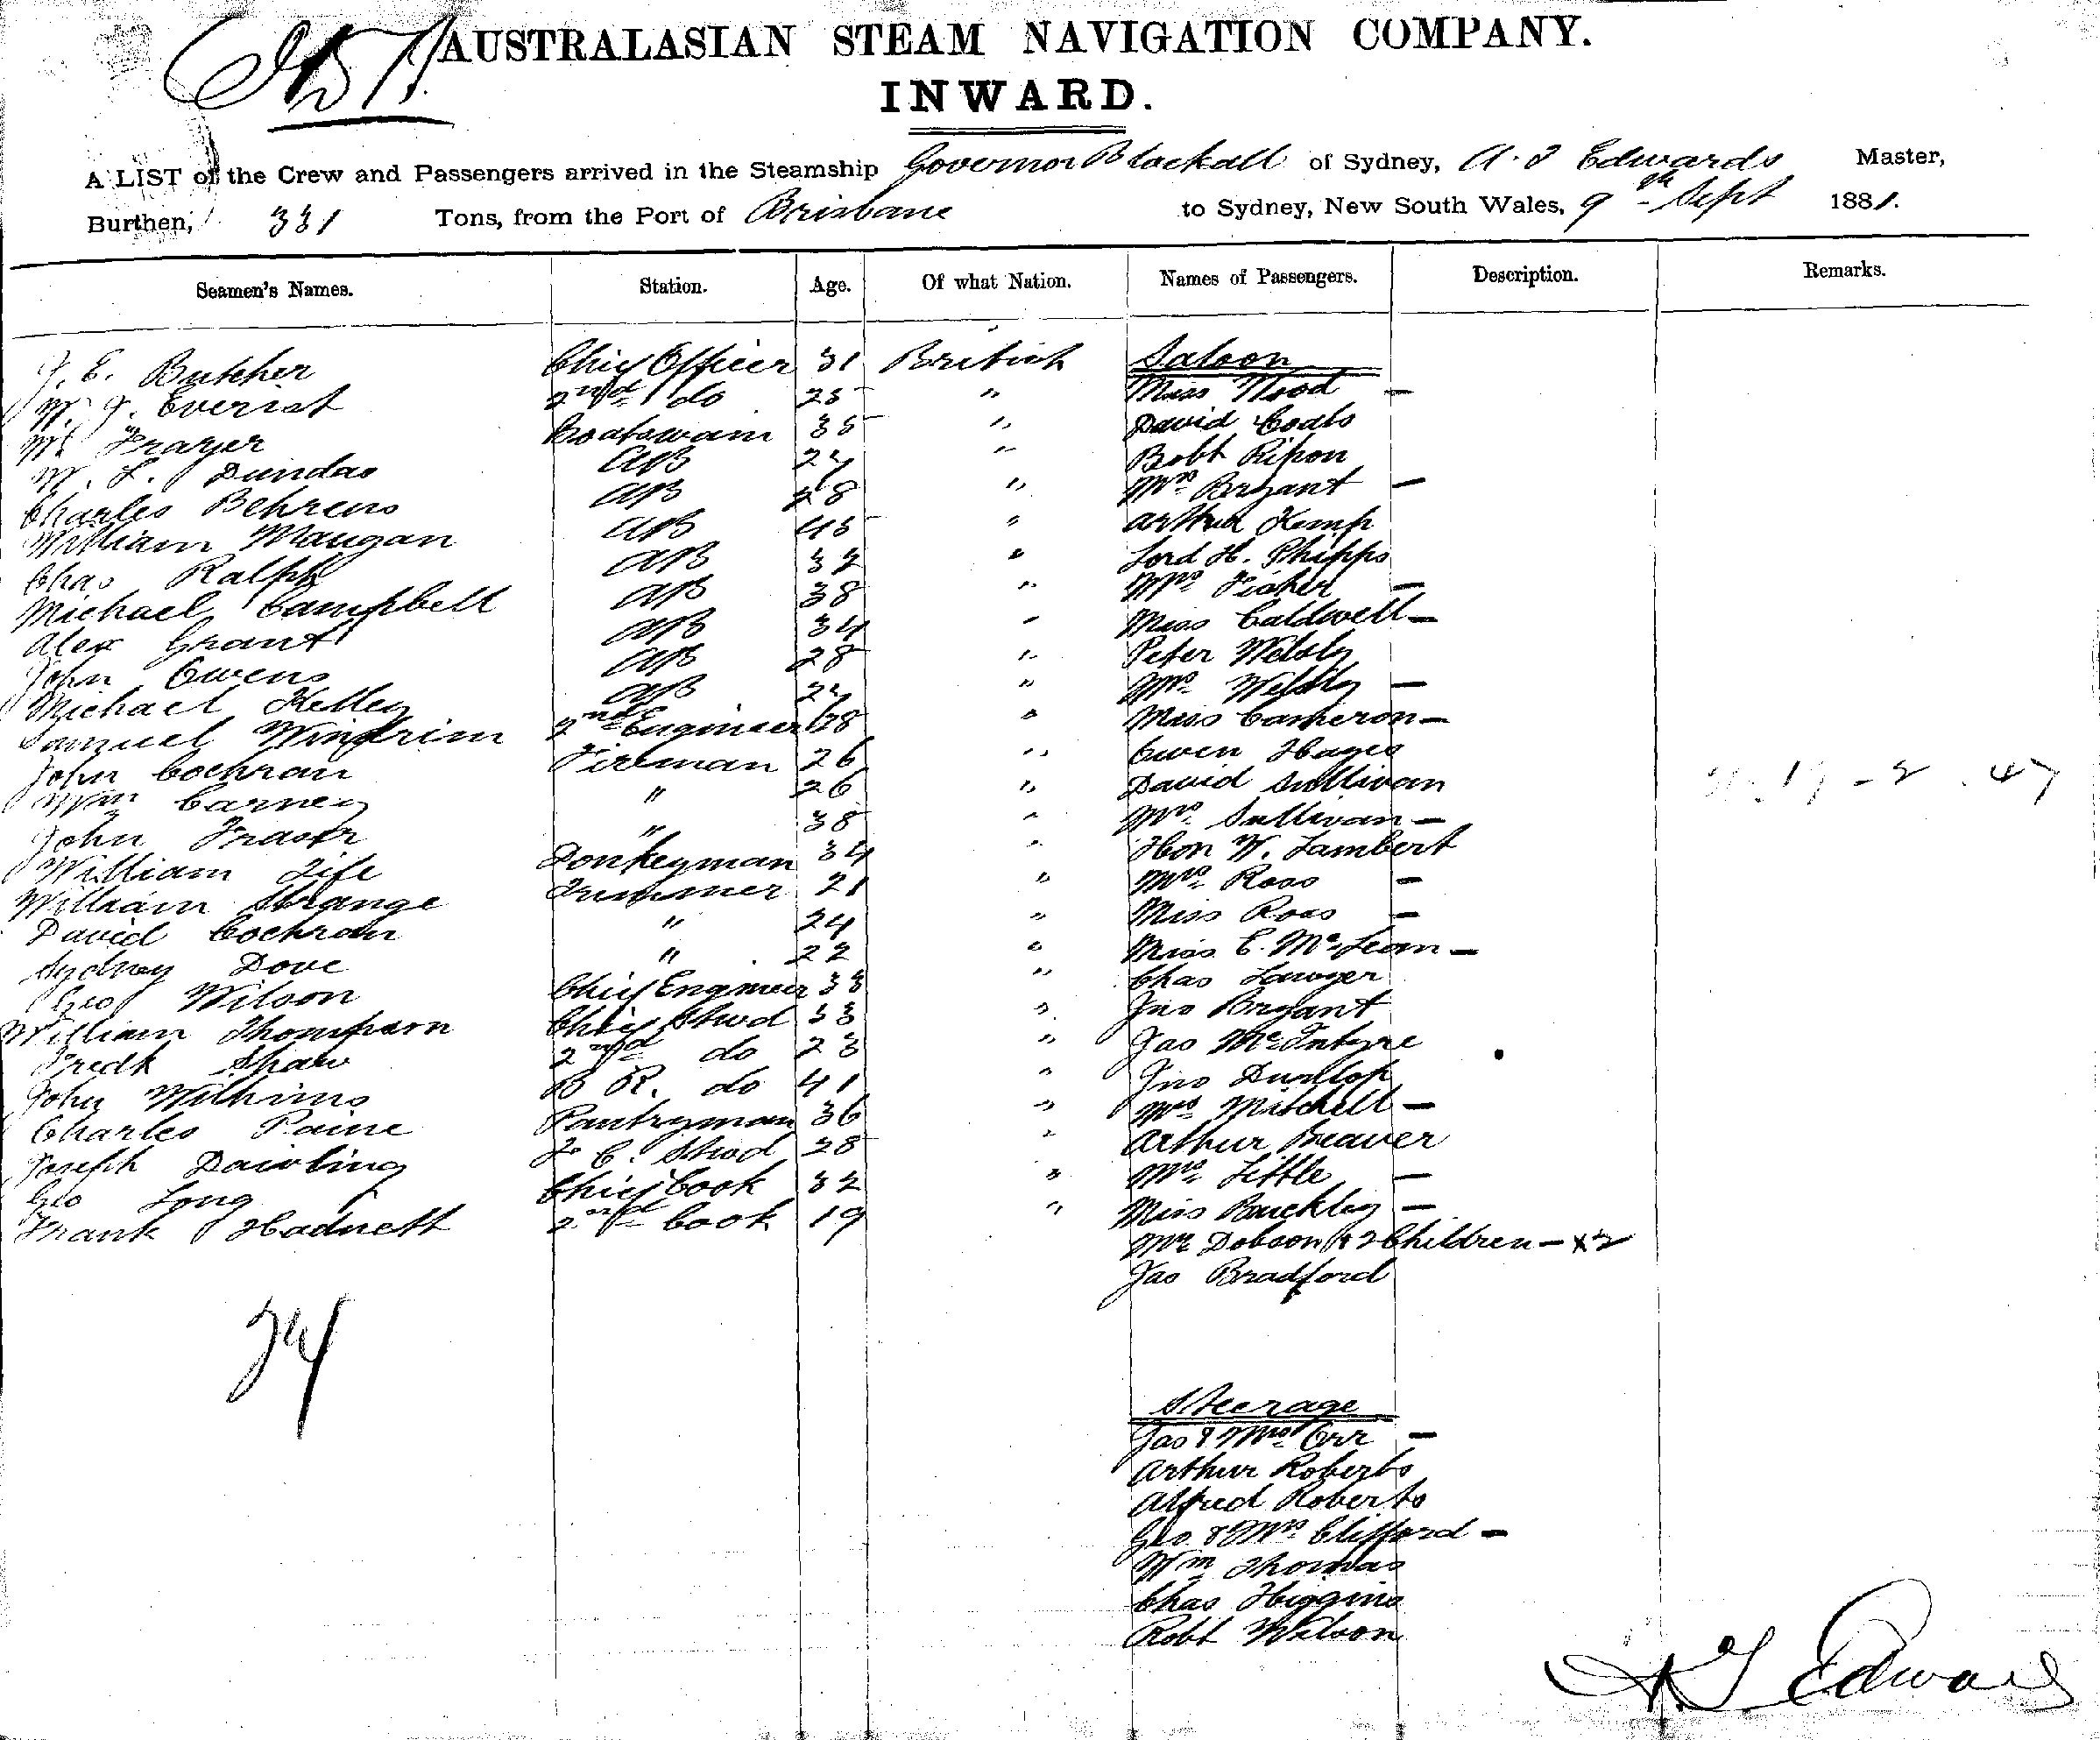 AUSTRALASIAN STEAM NAVIGATION COMPANY.
INWARD.
A LIST of the Crew and Passengers arrived in the Steamship Governor Blackall of Sydney, A. T Edwards Master,
Burthen, 331 Tons, from the Port of Brisbane to Sydney, New South Wales, 9th Sept 1881.
Seamen's Names. Station. Age. Of what Nation. Names of Passengers. Description. Remarks.
J. E. Butcher Chief Officer 31 British Saloon
W. J. Everist 2nd do 25 " Miss Wood —
Wm Frazer Boatswain 35 " David Coats
W. L. Dundas AB 27 " Robt Ripon
Charles Behrens AB 28 " Mrs Bryant —
William Maugan AB 45 " Arthur Kemp
Chas Ralph AB 32 " Lord H. Phipps
Michael Campbell AB 38 " Mrs Fisher —
Alex Grant AB 34 " Miss Caldwell —
John Owens AB 28 " Peter Welsby
Michael Kelley AB 27 " Mrs Welsby —
Samuel Windrim 2nd Engineer 38 " Miss Cameron —
John Cochran Fireman 26 " Owen Hayes
Wm Carney " 26 " David Sullivan
John Fraser " 38 " Mrs Sullivan —
William Fife Donkeyman 34 " Hon W. Lambert
William Strange Trimmer 21 " Mrs Ross —
David Cochran " 24 " Miss Ross —
Sydney Dove " 22 " Miss C. McLean —
Geo Wilson Chief Engineer 38 " Chas Sawyer
William Thompson Chief Stwd 33 " Jno Bryant
Fredk Shaw 2nd do 23 " Jas McIntyre
John Wilkins B R. do 41 " Jno Dunlop
Charles Paine Pantryman 36 " Mrs Mitchell —
Joseph Dawling F. C. Stwd 28 " Arthur Beaver
Geo Long Chief Cook 32 " Mrs Little —
Frank Hadnett 2nd Cook 19 " Miss Buckley —
Mrs Dobson & 2 Children — x2
Jas Bradford
Steerage
Jas & Mrs Orr —
Arthur Roberts
Alfred Roberts
Geo & Mrs Clifford —
Wm Thomas
Chas Higgins
Robt Wilson
A T Edwards